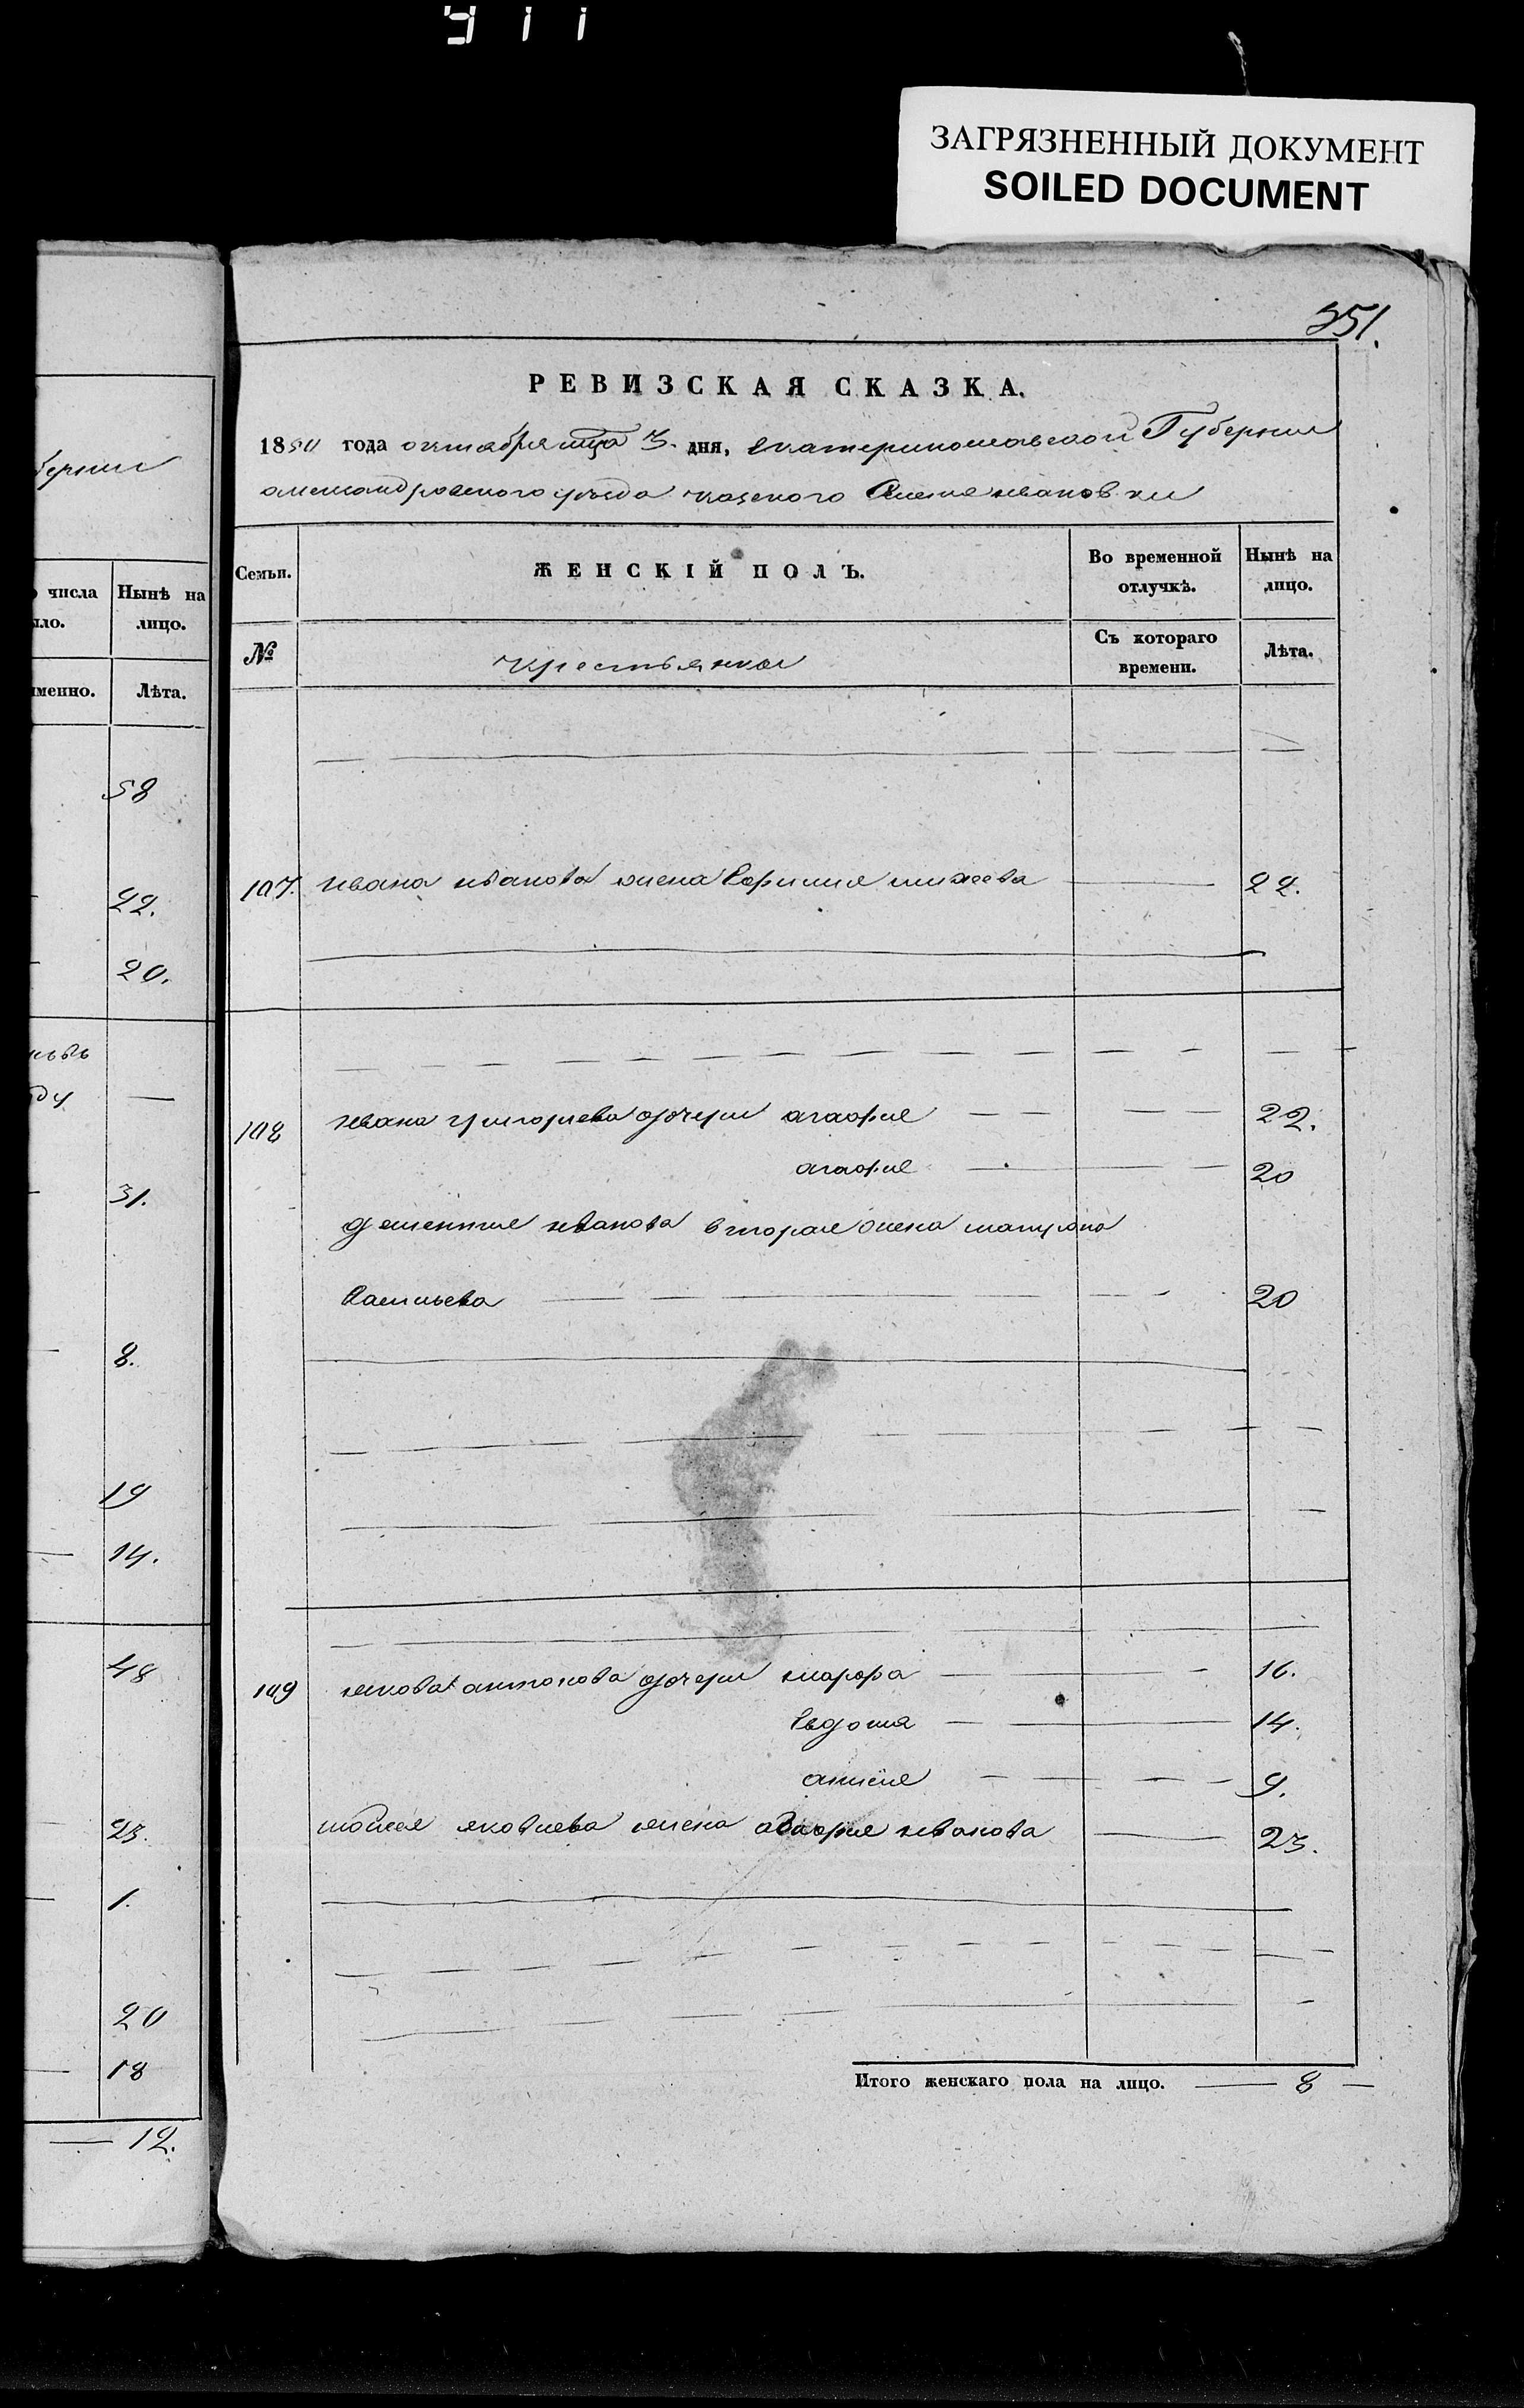 911
ЗАГРЯЗНЕННЫЙ ДОКУМЕНТ
SOILED DOCUMENT
351.
РЕВИЗСКАЯ СКАЗКА.
1850 года октября мца 3. дня, Екатеринославской Губернии
александровского уезда казеного
Семьи.
ЖЕНСКІЙ ПОЛЪ.
Во временной отлучкѣ.
Нынѣ на лицо.
№
крестьянка
Съ котораго времени.
Лѣта.
107. ивана иванова жена 22.
108 ивана григориева дочери агафие 22.
агафие 20
иванова вторая жена
Васильева 20
109 антонова дочери марфа 16.
Евдоша 14.
9.
яковлева жена иванова 23.
Итого женскаго пола на лицо. 8
бернии
числа
ыло.
Нынѣ на
лицо.
именно.
Лѣта.
58
22.
20.
ду
31.
8.
19
14.
48
23.
1.
20
18
12.